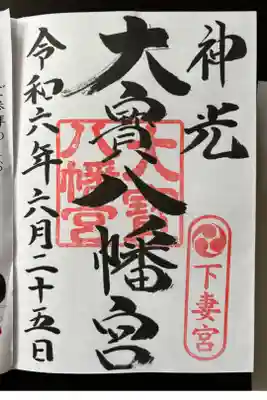 神光
下妻宮
大寳八幡宮
大寳八幡宮
令和六年六月二十五日